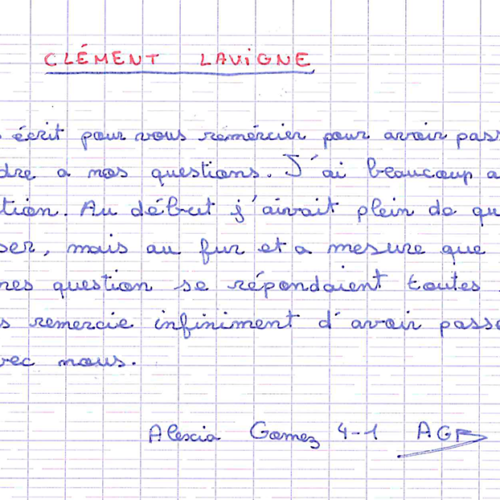 CLÉMENT LAVIGNE
écrit pour vous remercier pour avoir pass
dre a nos questions. J'ai beaucoup a
tion. Au début j'aivait plein de qu
ser, mais au fur et a mesure que
mes question se répondaient toutes
s remercie infiniment d'avoir passe
vec nous.
Alexia Gomez 4-1 AGP